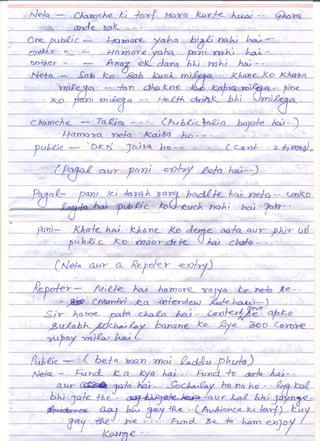 Neta - Chamche ki tarf isara karte huae -- Ghora
ande rak ---
One public - Hamare yaha bijli nahi hai -
other " - Hamare yaha pani nahi hai -
onther " - Anaz ek dana bhi nahi hai --
Neta - Sab ko Sab kuch milega - khane ko khana
milega -- tan dhakne ko kapra milega - pine
ko pani milega -- Helth drink bhi milega.
Chamche - Talia --- (Public talia bajate hai -)
Hamara neta kaisa ho ---
public - DKN jaisa ho --- (Cont. - 2 times)
- (Pagal aur pani entry leta hai -)
Pagal - pani ki tarah rang badlte hai neta -- unko
lagta hai public ko kuch nahi hai
pani - khate hai khane ko denge aata aur phir
public ko maar dete hai chata --
(Neta aur a Repoter entry)
Repoter - Milte hai hamare rajya ke neta se --
- (Mantri ka interview lete hai -)
Sir hame pata chala hai - Center gove se apko
Sulabh Sochailay banane ke liye 300 Corore
rupay mila hai
Public - (beta man mai laddu phuta)
Neta - Fund ka kya hai - Fund to aate hai -
aur jata hai. Sochailay ho na ho - log kal
bhi jate the -- aur kal bhi jaynge -
aaj bhi gay the -- (Audiance ki tarf) kuy
gay the ne -- Fund se to ham enjoy
karnge --